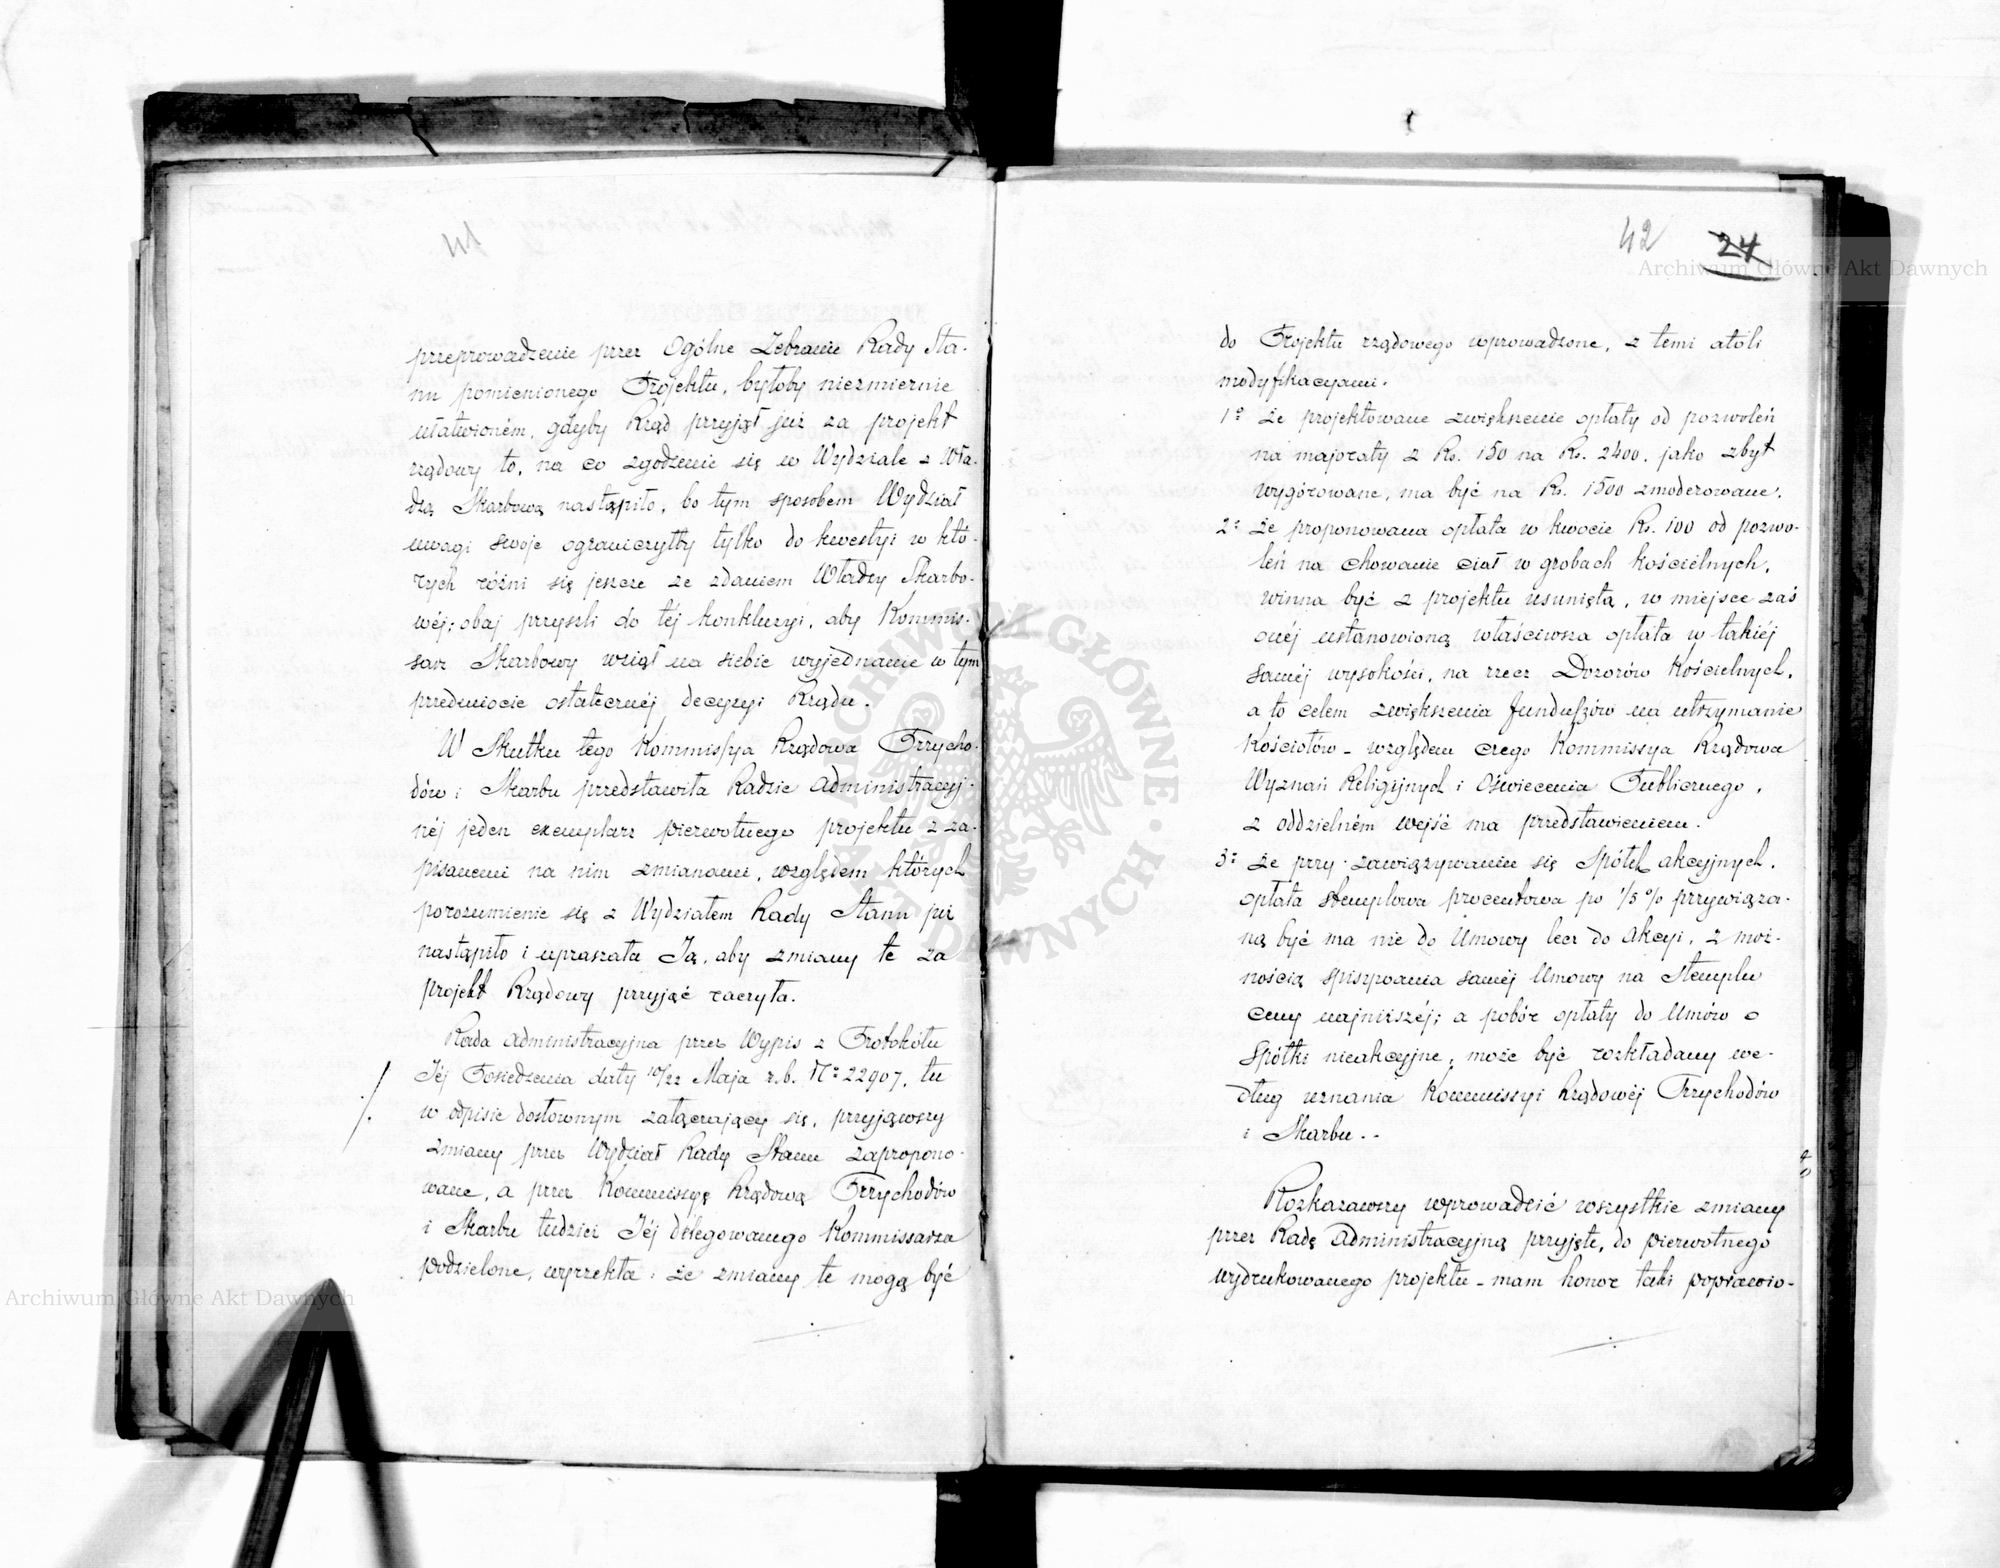 przeprowadzenie przez Ogólne Zebranie Rady Sta-
nu pomienionego Projektu, byłoby niezmiernie
ułatwioném, gdyby Rząd przyjął już za projekt
rządowy to, na co zgodzenie się w Wydziale z Wła-
dzą Skarbową nastąpiło, bo tym sposobem Wydział
uwagi swoje ograniczyłby tylko do kwestyi w któ-
rych różni się jeszcze ze zdaniem Władzy Skarbo-
wéj; obaj przyszli do téj konkluzyi, aby Kommis-
sarz Skarbowy wziął na siebie wyjednanie w tym
przedmiocie ostatecznéj decyzyi Rządu.
W Skutku tego Kommissya Rządowa Przycho-
dów i Skarbu przedstawiła Radzie Administracyj-
néj jeden exemplarz pierwotnego projektu z za-
pisanemi na nim zmianami, względem których
porozumienie się z Wydziałem Rady Stanu już
nastąpiło i upraszała Ją, aby zmiany te za
projekt Rządowy przyjąć raczyła.
Rada Administracyjna przez Wypis z Protokółu
Jéj Posiedzenia daty 10/22 Maja r.b. Nº 22907, tu
w odpisie dosłownym załączający się, przyjąwszy
zmiany przez Wydział Rady Stanu zapropono-
wane, a przez Kommissyę Rządową Przychodów
i Skarbu tudzież Jéj delegowanego Kommissarza
podzielone, wyrzekła: że zmiany te mogą być
42 24
do Projektu rządowego wprowadzone, z temi atoli
modyfikacyami.
1º że projektowane zwiększenie opłaty od pozwoleń
na majoraty z Rs. 150 na Rs. 2400, jako zbyt
wygórowane, ma być na Rs. 1500 zmoderowane.
2º że proponowana opłata w kwocie Rs. 100 od pozwo-
leń na chowanie ciał w grobach kościelnych,
winna być z projektu usunięta, w miejsce zaś
onéj ustanowioną właściwsza opłata w takiéj
saméj wysokości, na rzecz Dozorów Kościelnych,
a to celem zwiększenia funduszów na utrzymanie
Kościołów – względem czego Kommissya Rządowa
Wyznań Religijnych i Oświecenia Publicznego,
z oddzielném wejść ma przedstawieniem.
3º że przy zawiązywaniu się Spółek akcyjnych,
opłata stemplowa procentowa po 1/5 % przywiąza-
ną być ma nie do Umowy lecz do Akcyi, z moż-
nością spisywania saméj Umowy na Stemplu
ceny najniższéj; a pobór opłaty do Umów o
Spółki nieakcyjne, może być rozkładany we-
dług uznania Kommissyi Rządowéj Przychodów
i Skarbu..
Rozkazawszy wprowadzić wszystkie zmiany
przez Radę Administracyjną przyjęte, do pierwotnego
wydrukowanego projektu – mam honor taki poprawio-
Archiwum Główne Akt Dawnych
Archiwum Główne Akt Dawnych
ARCHIWUM GŁÓWNE AKT DAWNYCH